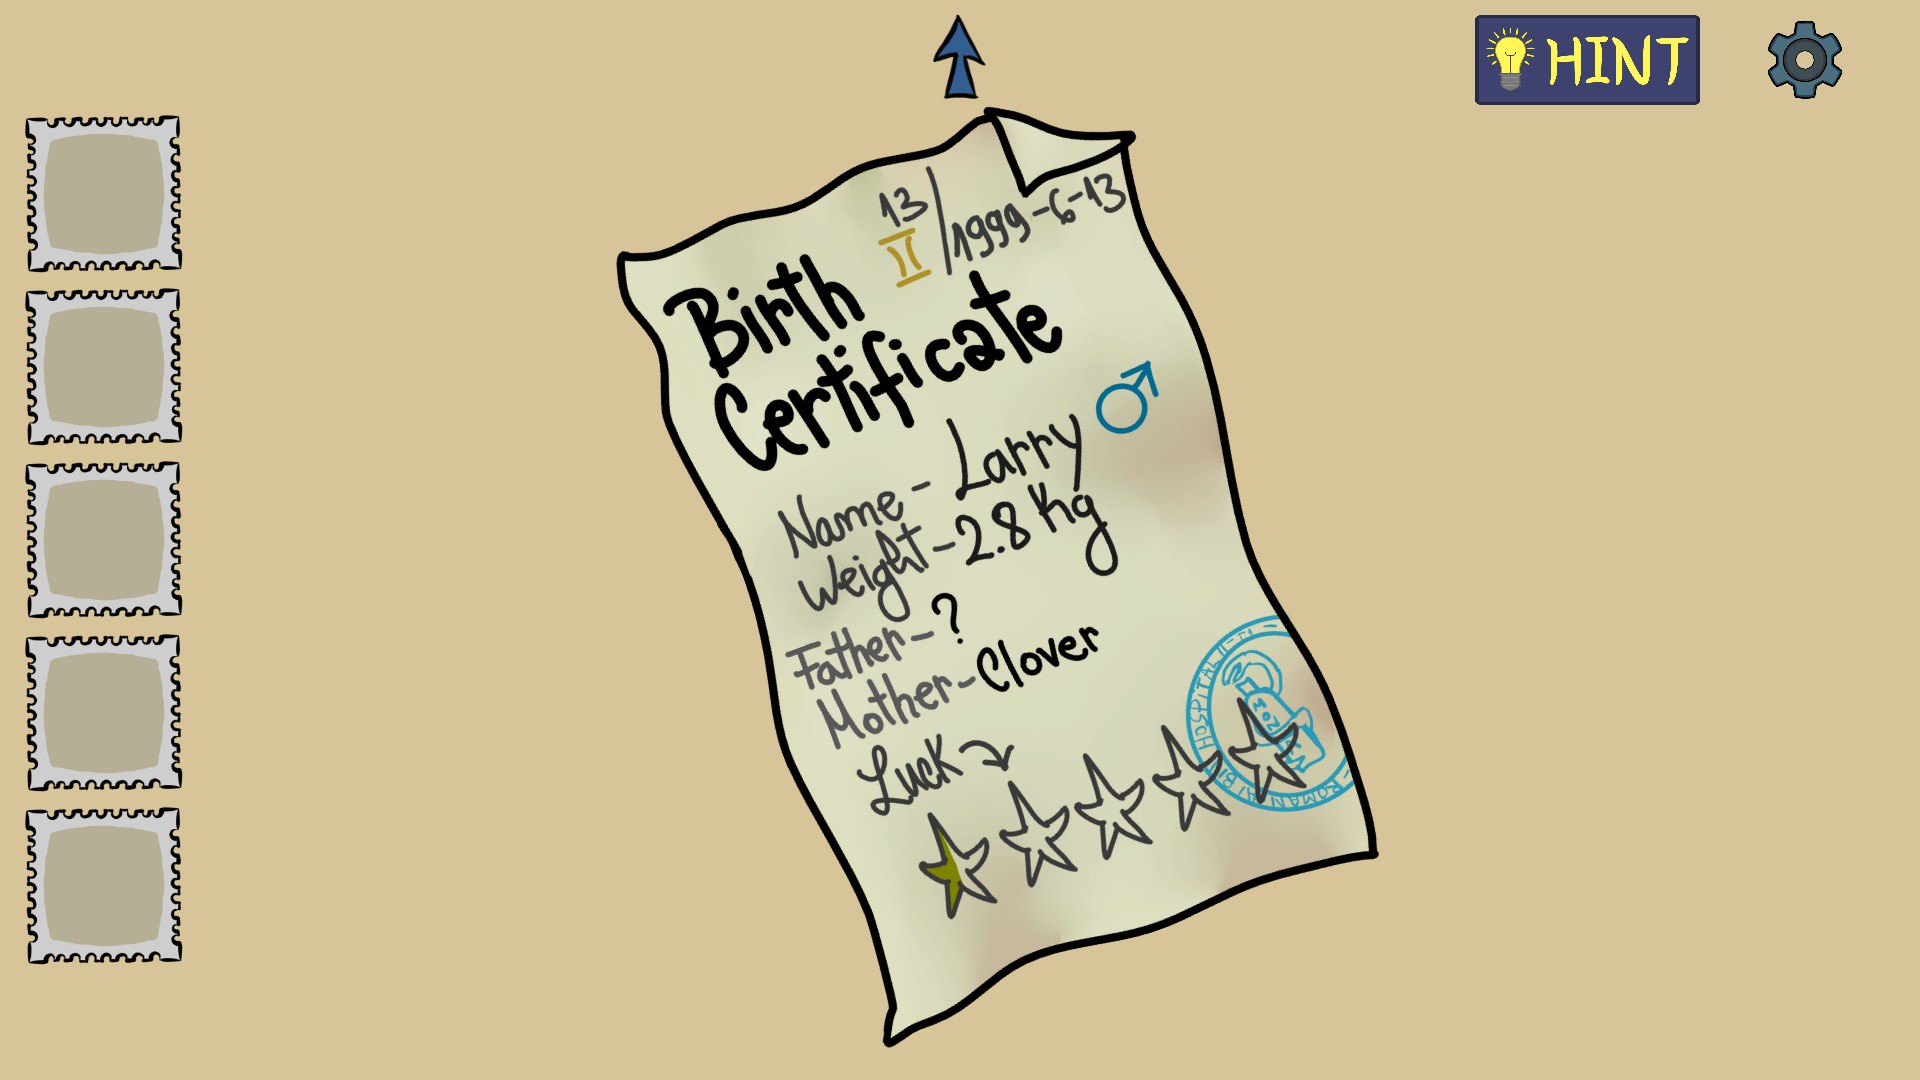 HINT
13
II / 1999-6-13
Birth
Certificate
Name - Larry
Weight - 2.8 Kg
Father - ?
Mother - Clover
Luck
HOSPITAL
ROMAN